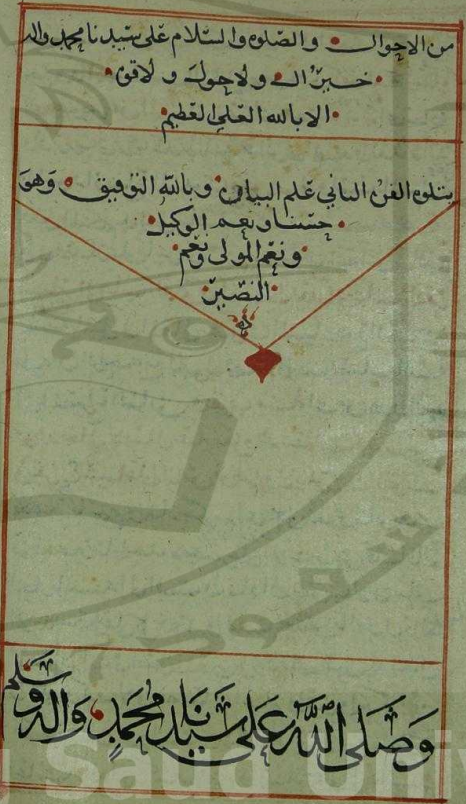 من الاحوال والصلوه والسلام على سيدنا محمد واله
خير ال ولا حول ولا قوة
الا بالله العلي العظيم
يتلوه الفن الثاني علم البيان وبالله التوفيق وهو
حسبنا ونعم الوكيل
ونعم المولى ونعم
النصير
وصلى الله على سيدنا محمد واله وسلم
Saud Univ